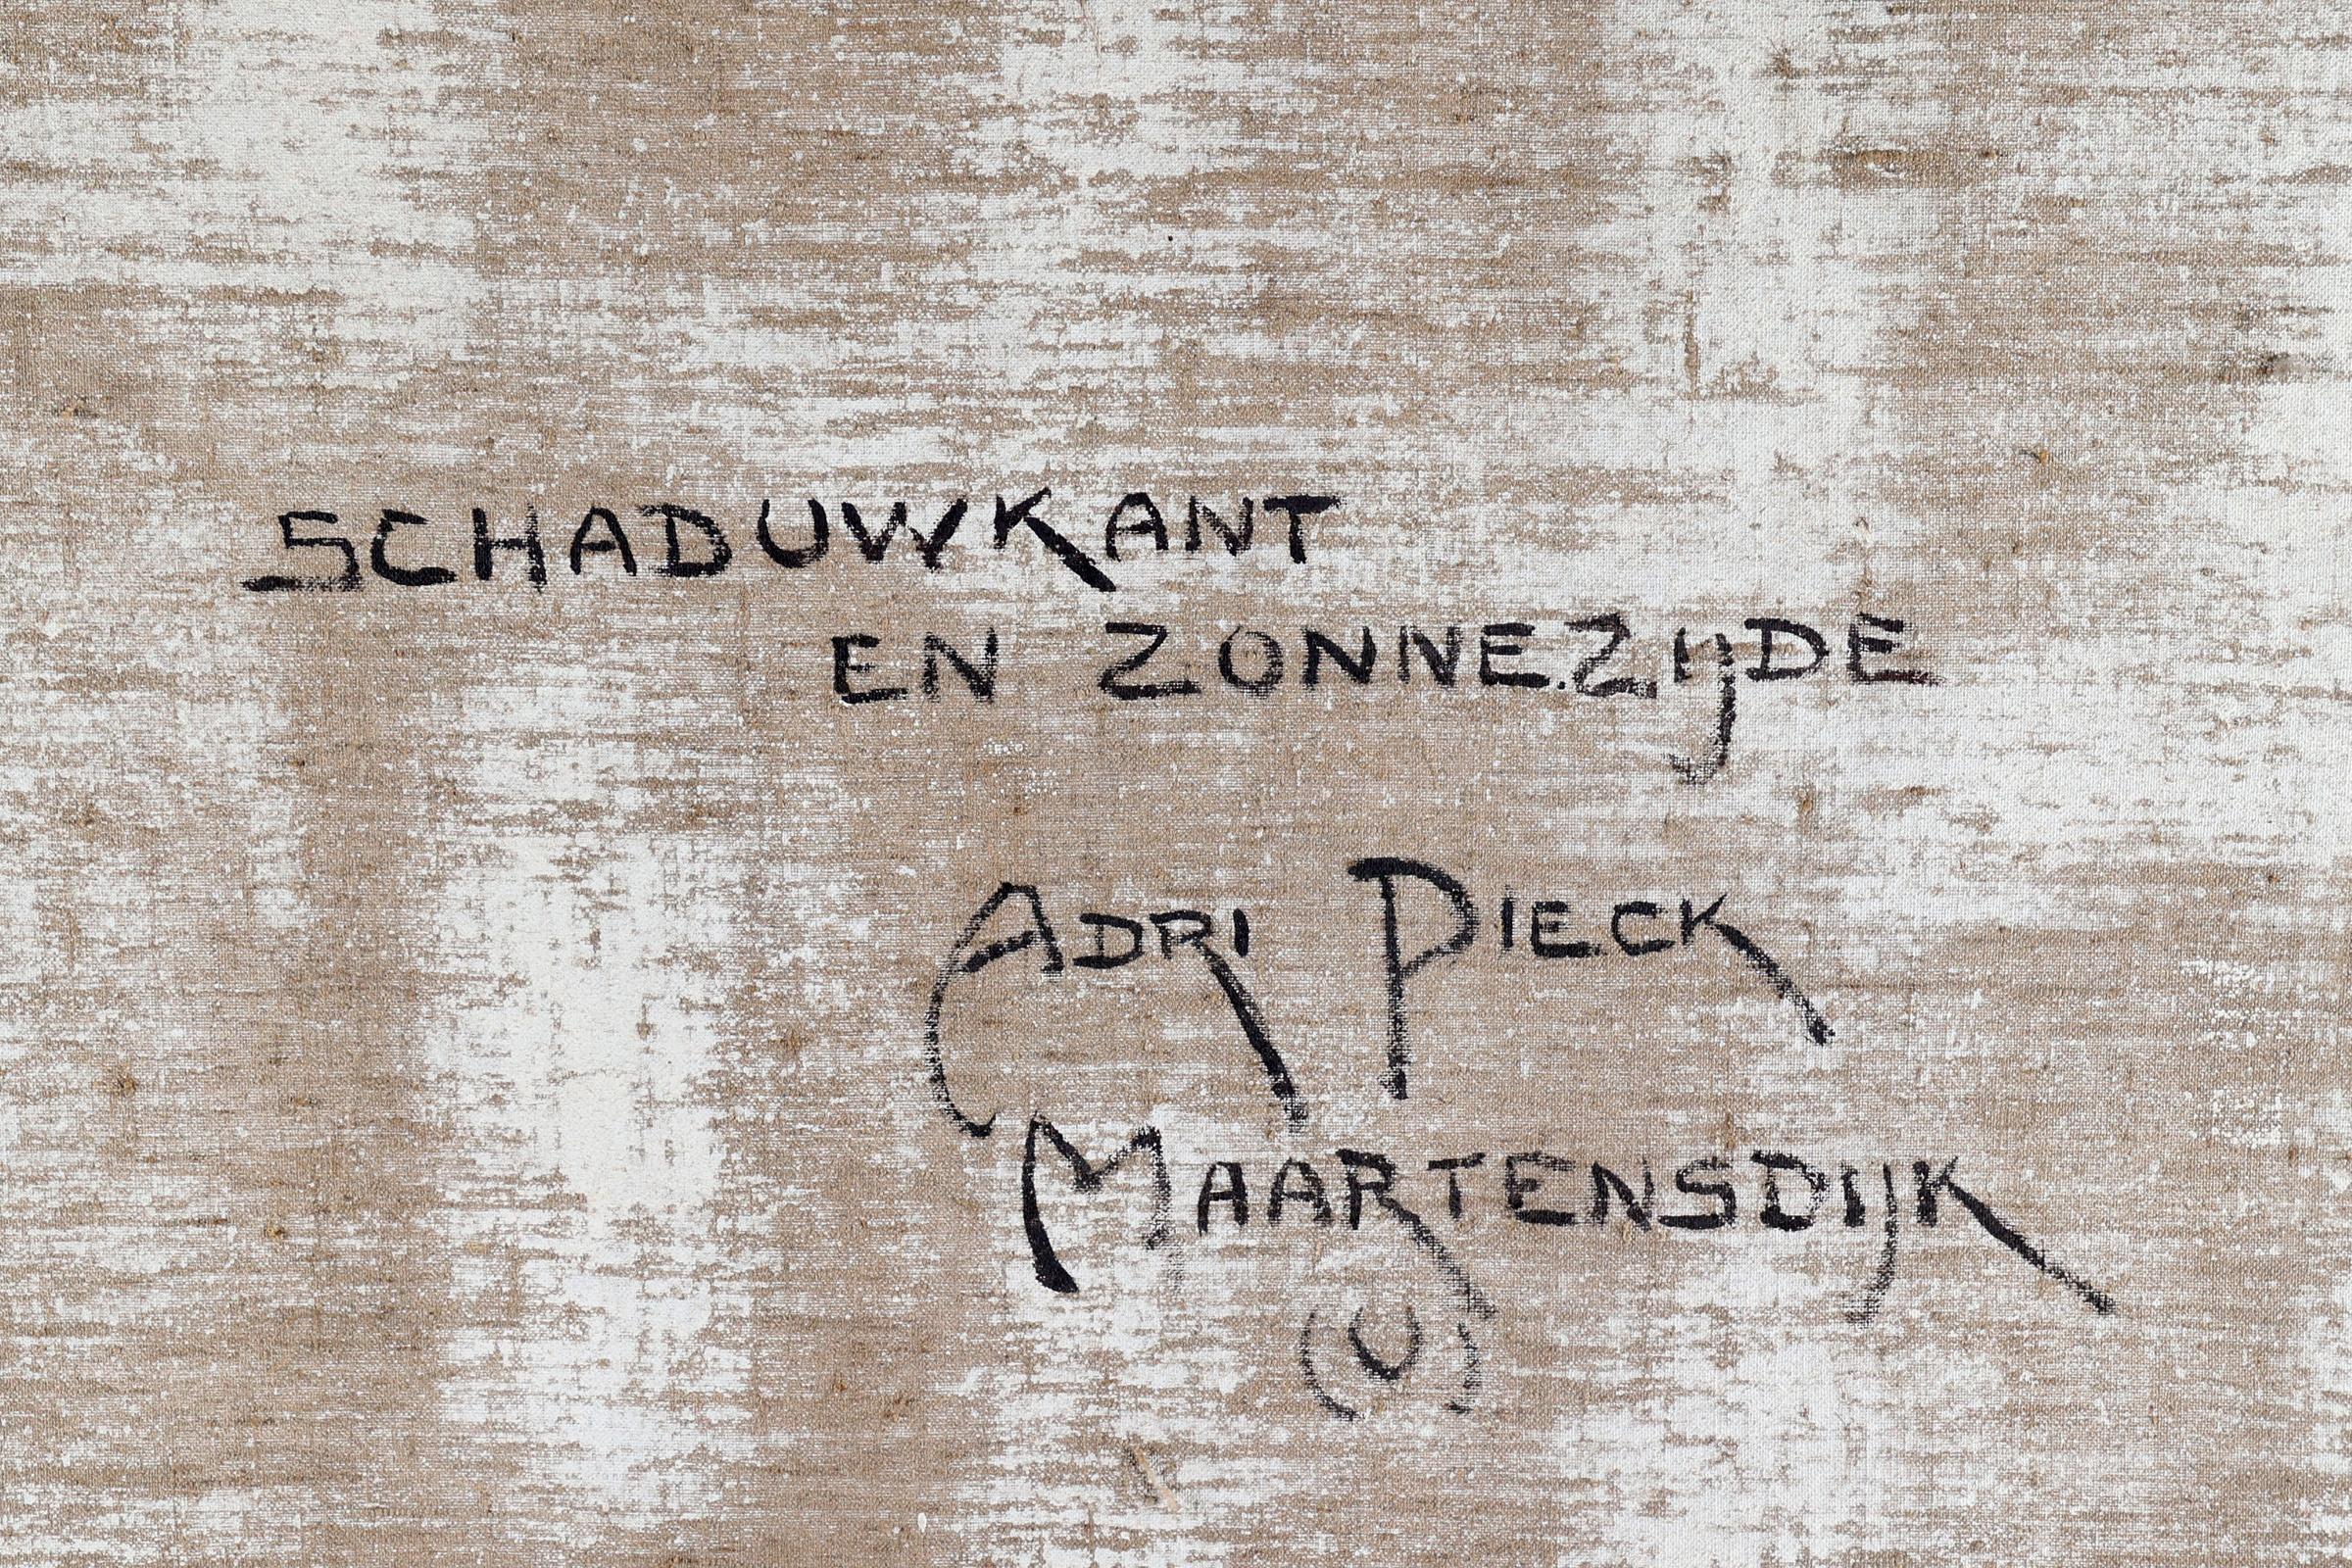 SCHADUWKANT
EN ZONNEZIJDE
ADRI PIECK
MAARTENSDIJK
(U)